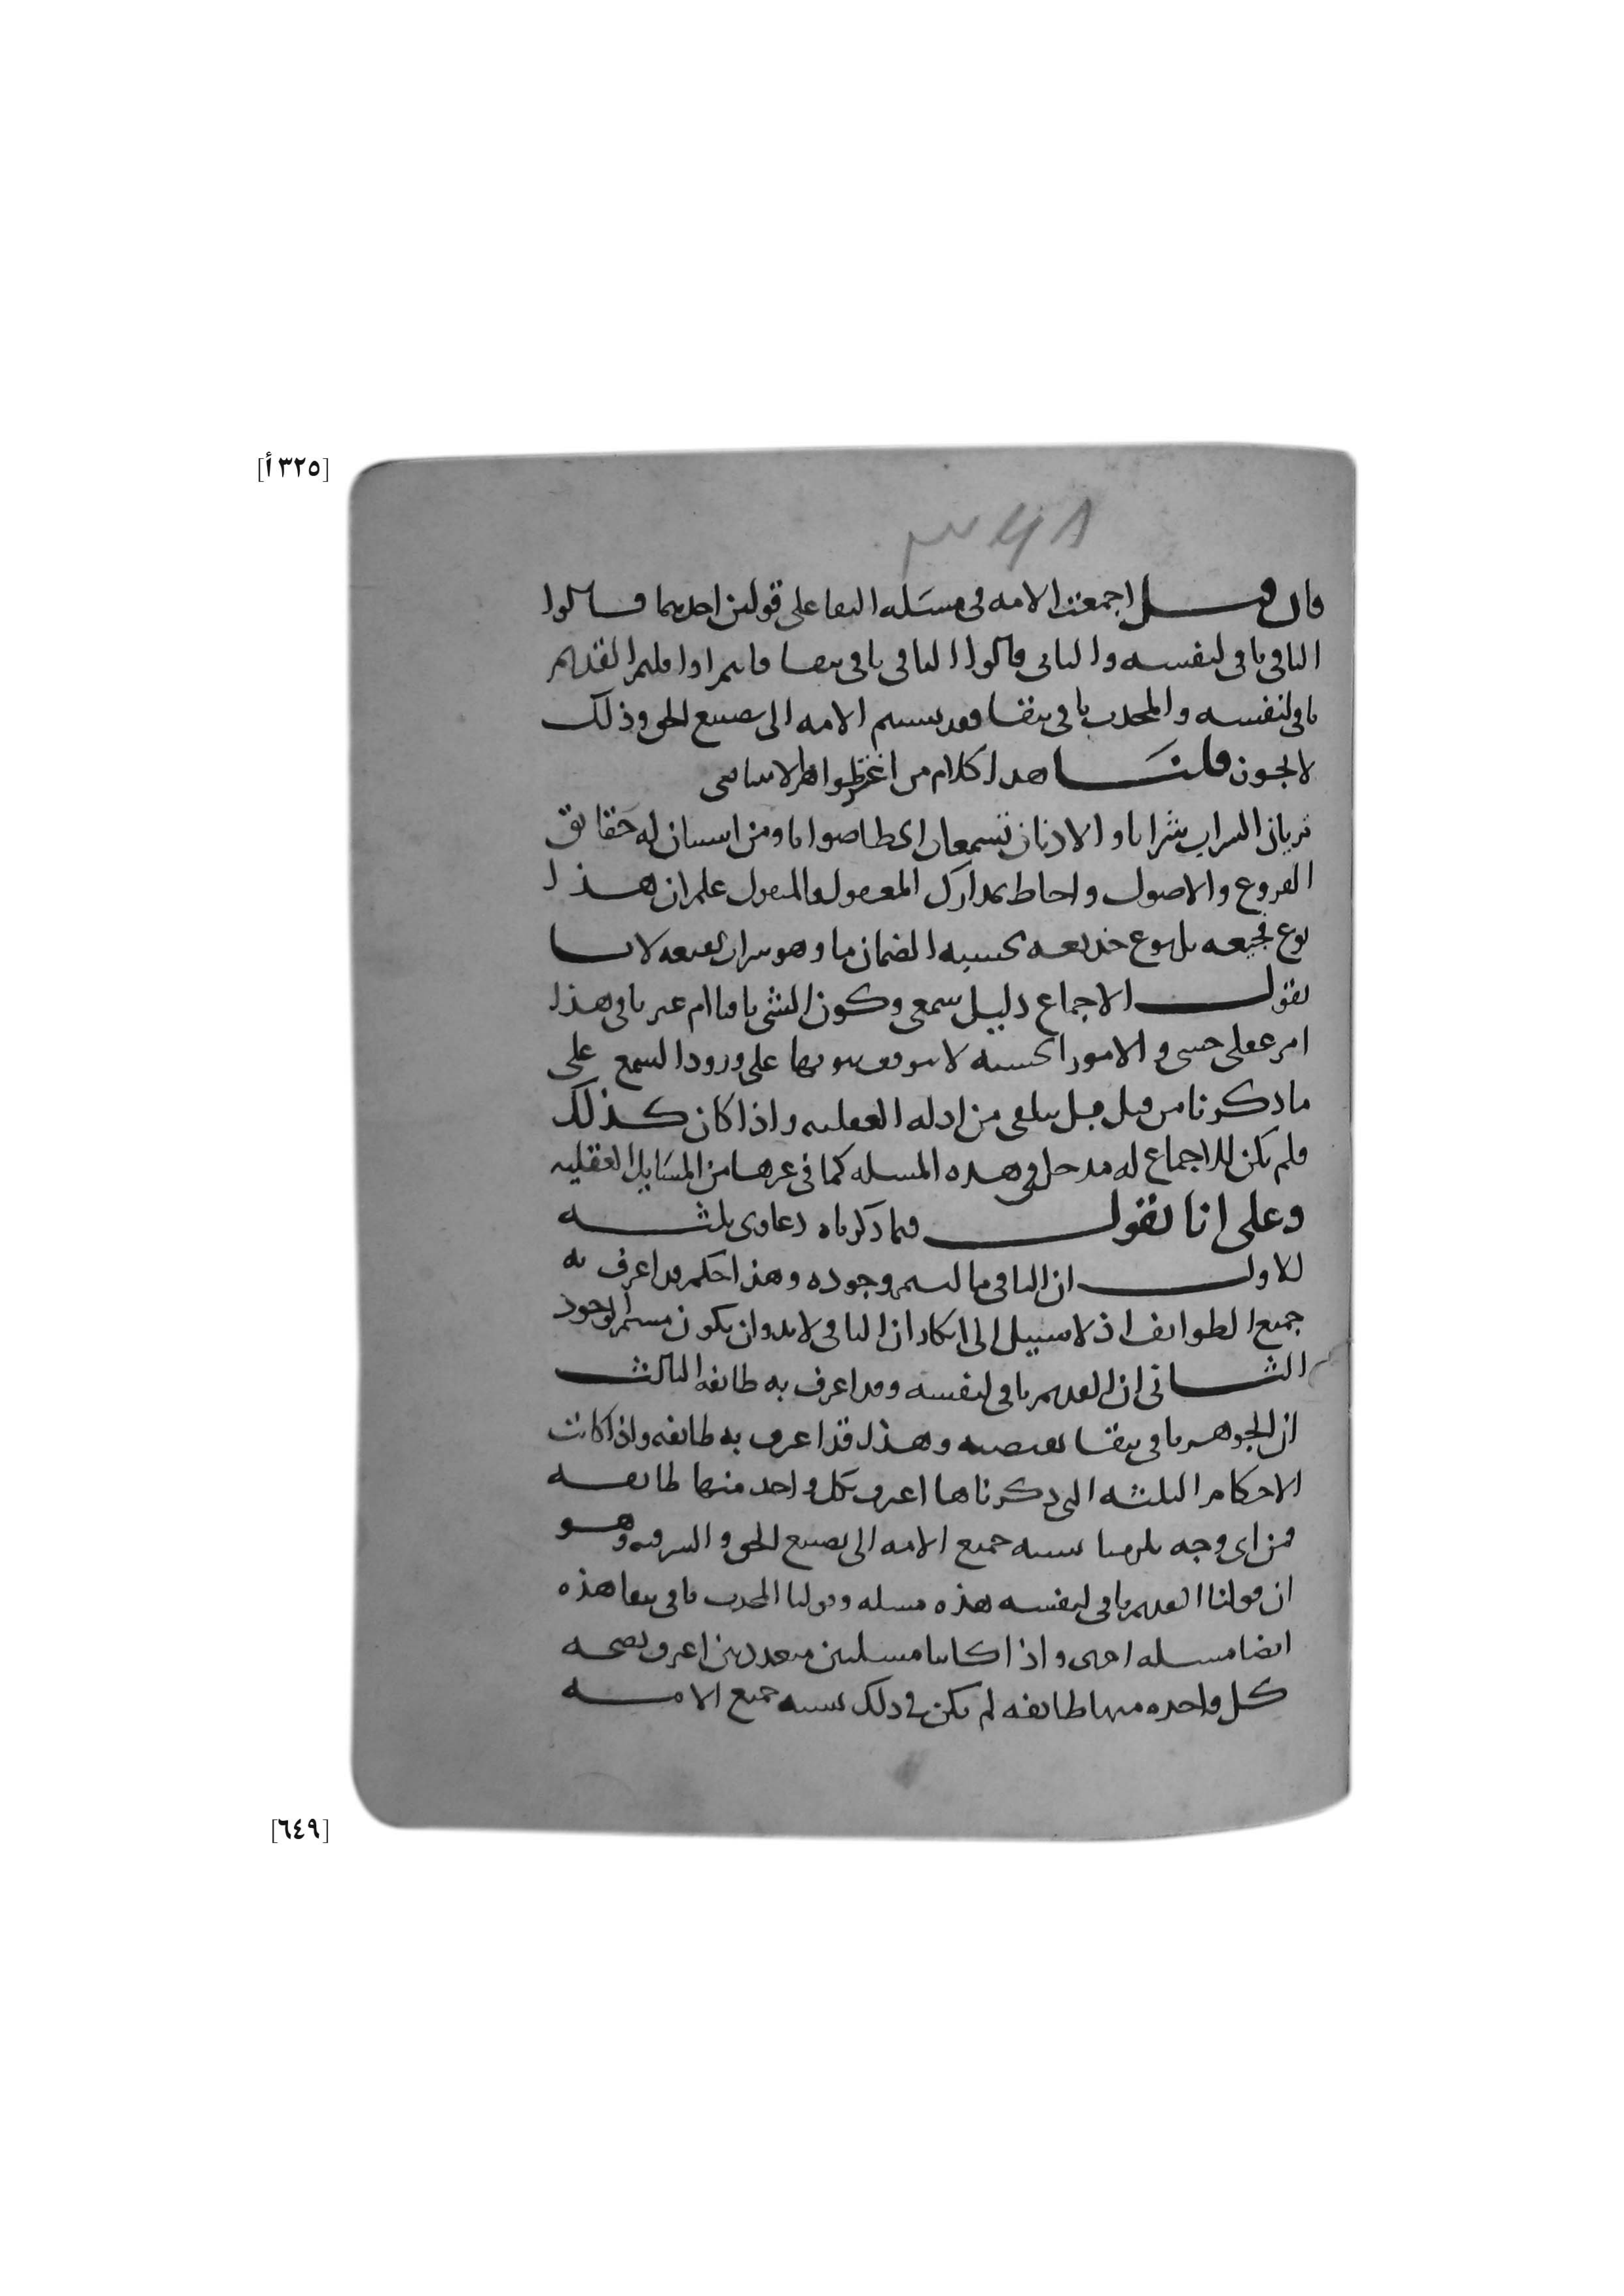 [٣٢٥ أ]
فان قيل اجمعت الامه في مسَله البقا على قولين احدهما قالوا
الباقي باقي لنفسه والثاني قالوا الباقي باقي ببقا فانتم اذا قلتم القديم
باقي لنفسه والمحدث باقي ببقا فقد نسبتم الامه الى تضييع الحق وذلك
لا يجوز قلنَا هذا كلام من اغتر بظواهر الاسامي
الشراب شرابا و الاذنان تسمعان اصواتا ومن استبان له حَقائق
الفروع والاصول واحاط بمدارك المعقول والمنقول علم ان هذا
نوع بل نوع خديعه يحسبه الضمان ما وهو سراب بقيعه لانا
نقول الاجماع دليل سمعي وكون الشي باقيا ام غير باقي هذا
امر عقلي حسي و الامور الحسيه لا يتوقف ثبوتها على ورود السمع على
ما ذكرنا من قبل بل يتلقى من ادله العقليه واذا كان كذلك
فلم يكن للاجماع له مدخل في هذه المسله كما في غيرها من المسَايل العقليه
وعلى انا نقول فيما ذكرناه دعاوى ثلثه
الاول ان الباقي ما يستمر وجوده وهذا حكم قد اعترف به
جميع الطوائف اذ لا سبيل الى انكار ان الباقي لا بد وان يكون مستمر الوجود
الثاني ان القديم باقي لنفسه وقد اعترف به طائفه الثالث
ان الجوهر باقي ببقا وهذا قد اعترف به طائفه واذا كانت
الاحكام الثلثه التي ذكرناها اعترف بكل واحد منها طائفه
فمن اي وجه يلزمنا نسبه جميع الامه الى تضييع الحق و وهو
ان قولنا القديم باقي لنفسه هذه مسله وقولنا المحدث باقي ببقا هذه
ايضا مسله اخرى واذا كانتا مسلتين متعددتين اعترف بصحه
كل واحده منها طائفه لم يكن في ذلك نسبه جميع الامه
[٦٤٩]